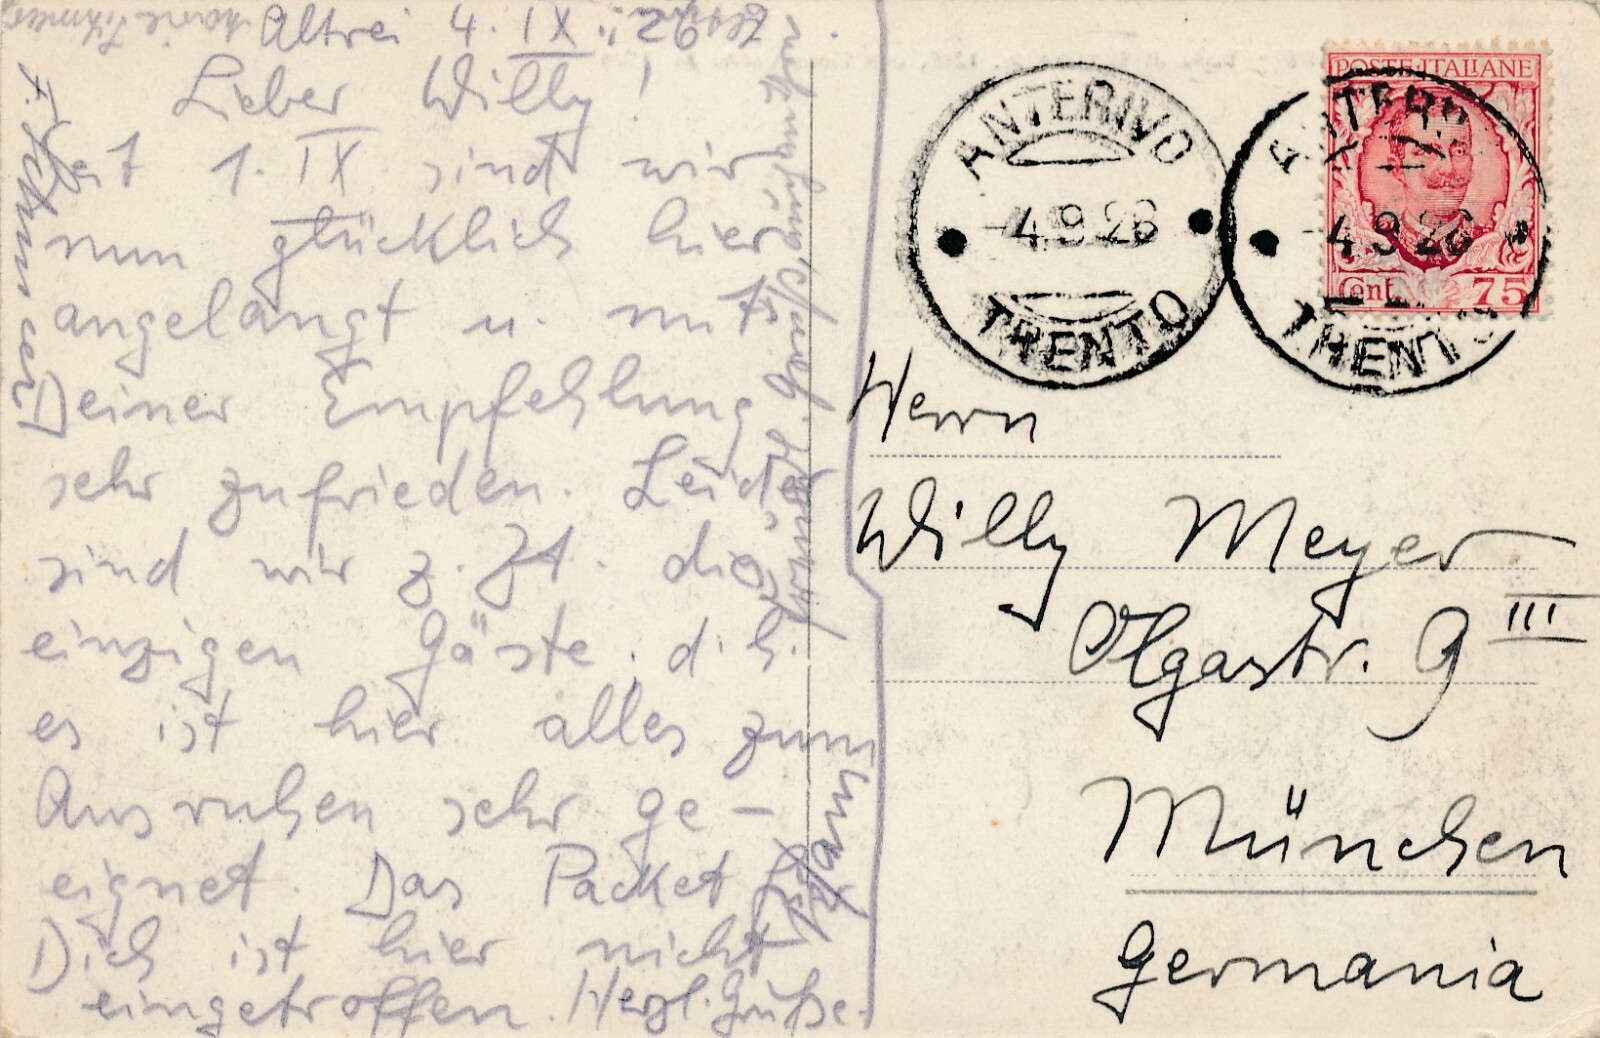 Altrei 4. IX. 26
Lieber Willy!
seit 1. IX sind wir
nun glücklich hier
angelangt u. mit
Deiner Empfehlung
sehr zufrieden. Leider
sind wir z. Zt. die
einzigen Gäste, d. h.
es ist hier alles zum
Ausruhen sehr ge-
eignet. Das Packet für
Dich ist hier nicht
eingetroffen. Herzl. Grüße.
ANTERIVO
4.9.26
TRENTO
ANTERIVO
4.9.26
TRENTO
POSTE ITALIANE
Cent. 75
Herrn
Willy Meyer
Olgastr. 9 III
München
Germania